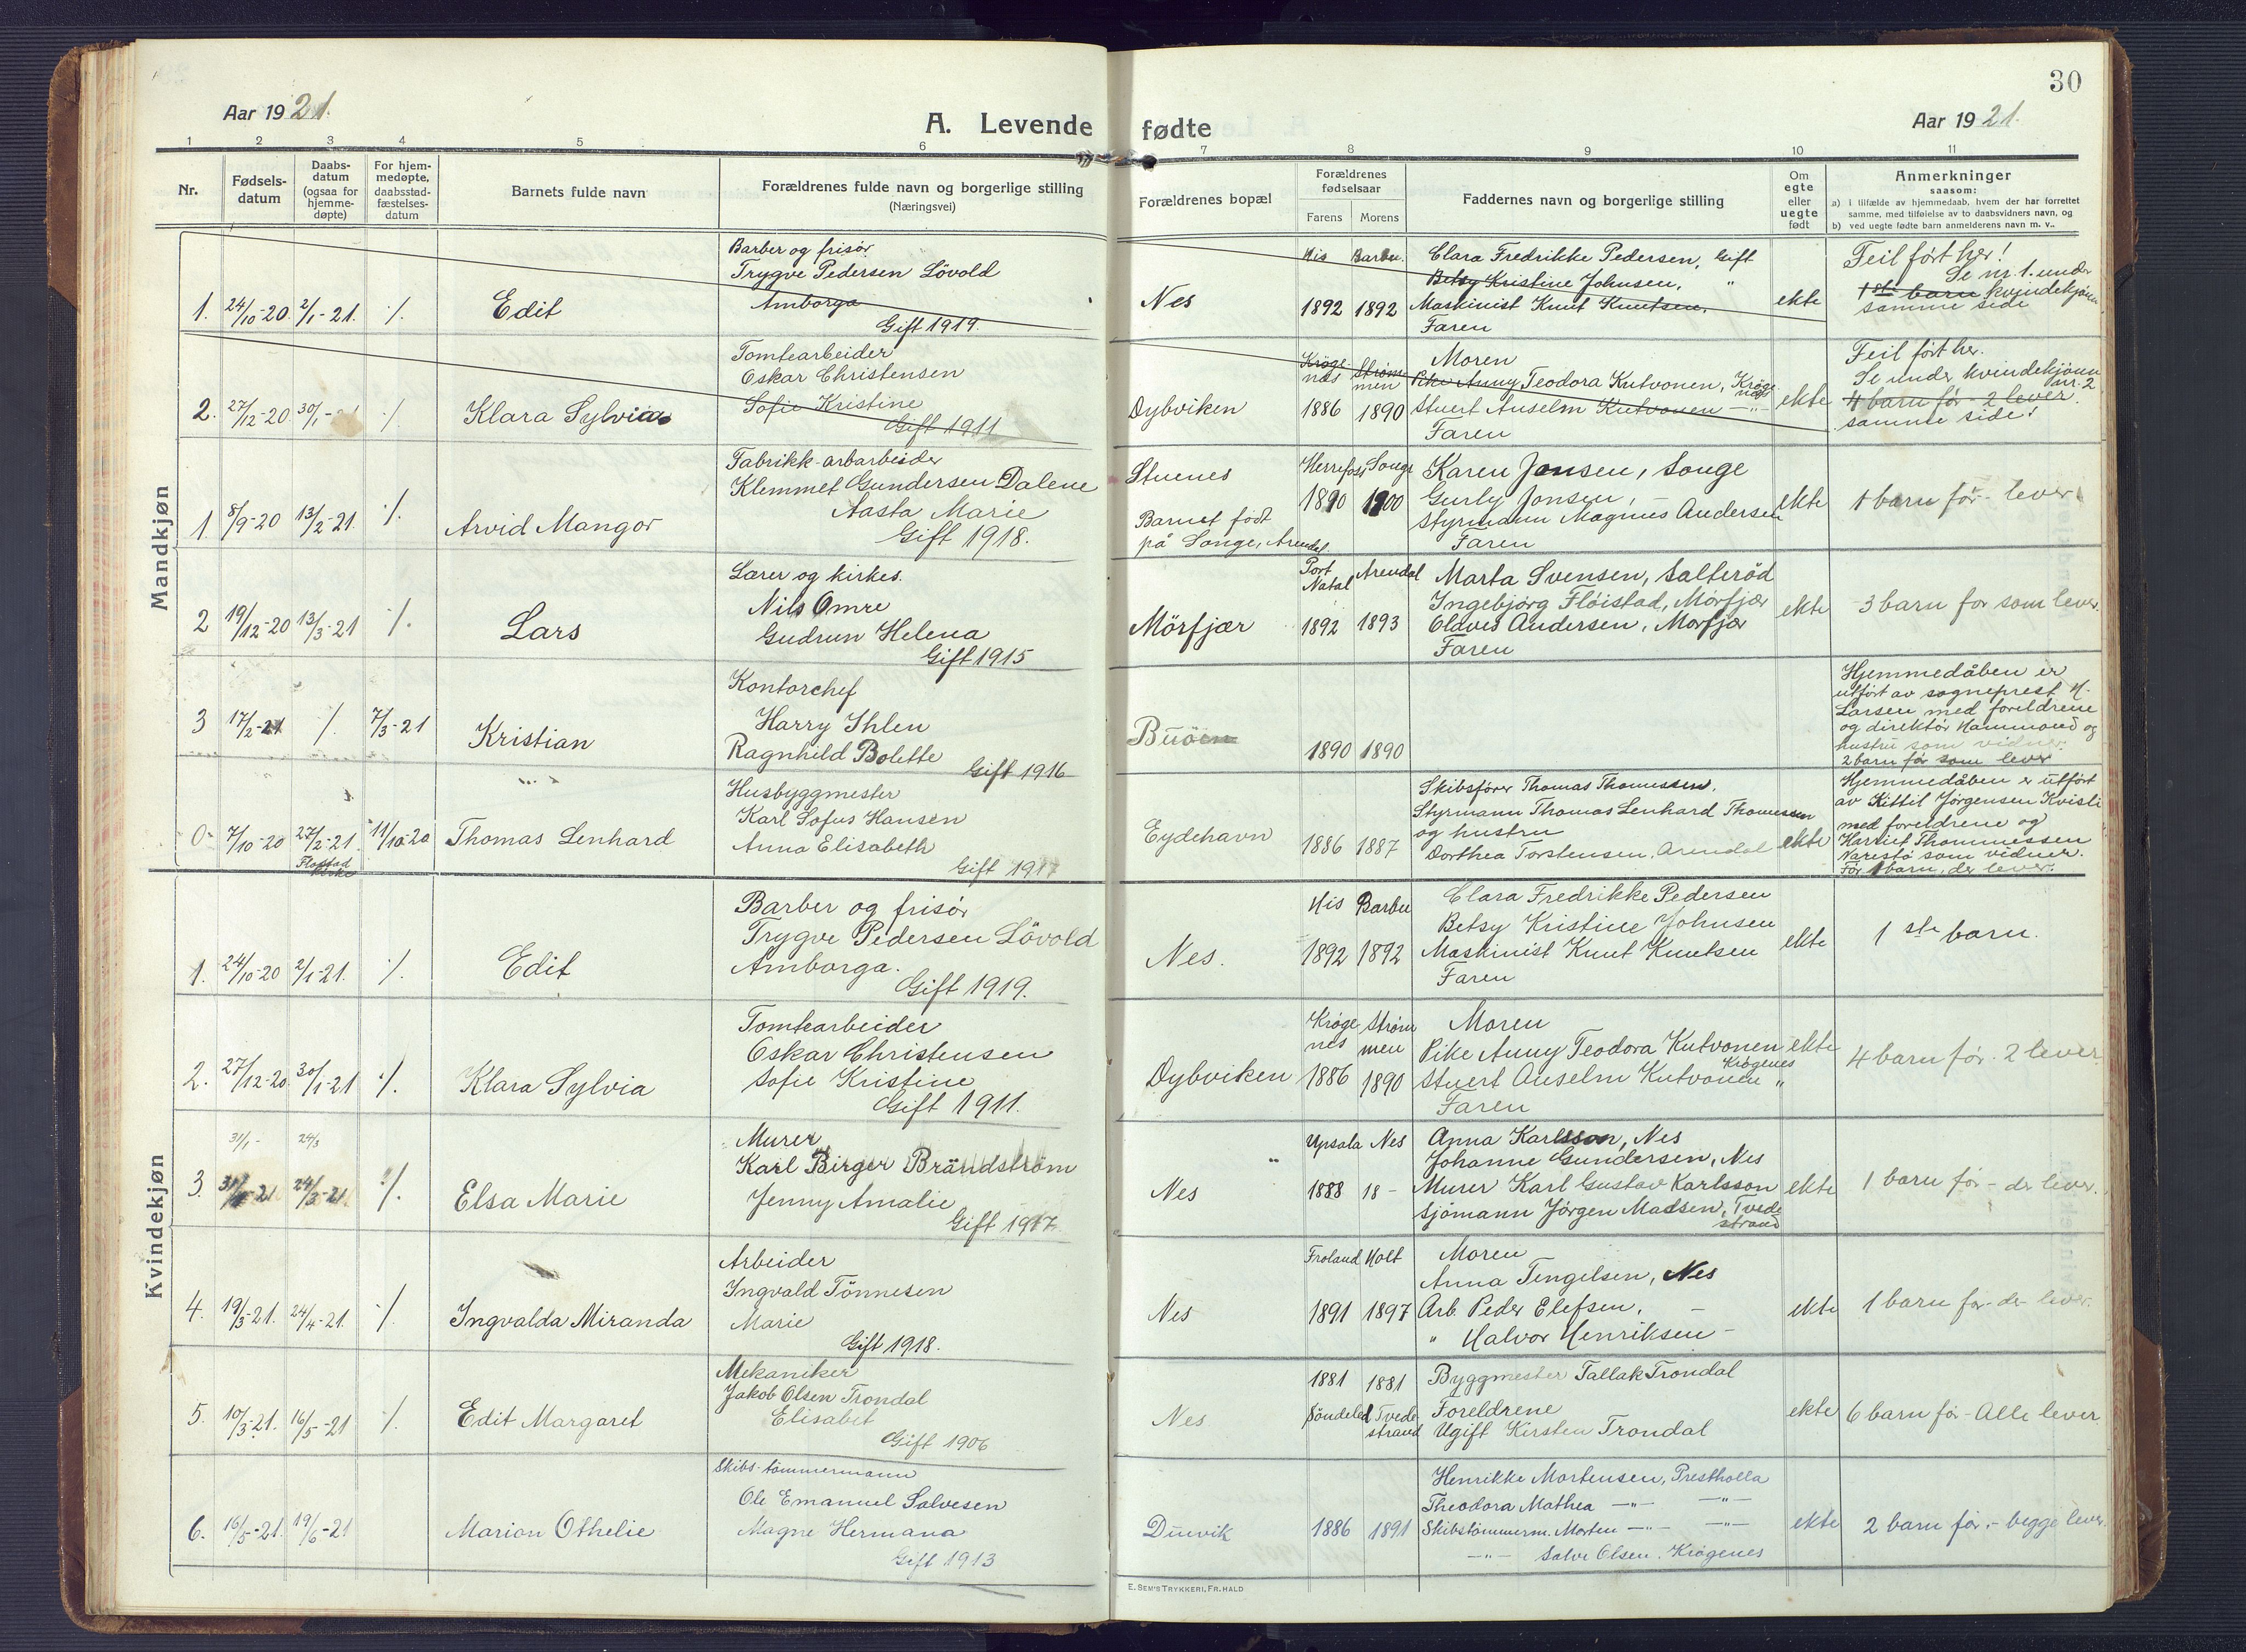 30
Aar 1921.
A. Levende fødte
Aar 1921.
1 2 3 4 5 6 7 8 9 10 11
Nr.
Fødsels-
datum
Daabs-
datum
(ogsaa for
hjemme-
døpte)
For hjem-
medøpte,
daabsstad-
fæstelses-
datum
Barnets fulde navn
Forældrenes fulde navn og borgerlige stilling
(Næringsvei)
Forældrenes bopæl
Forældrenes
fødselsaar
Farens Morens
Faddernes navn og borgerlige stilling
Om
egte
eller
uegte
født
Anmerkninger
saasom:
a) i tilfælde av hjemmedaab, hvem der har forrettet
samme, med tilføielse av to daabsvidners navn, og
b) ved uegte fødte barn anmelderens navn m. v..
Mandkjøn
1. 24/10-20. 2/1-21. ·/. Edit
Barber og frisör.
Trygve Pedersen Lövold
Amborga
Gift 1919.
Nes
His Barbu.
1892 1892
Clara Fredrikke Pedersen, Gift
Betsy Kristine Johnsen, "
Maskinist Knut Knutsen,
Faren
ekte
Feil fört her!
Se nr. 1. under
1ste barn kvindekjönn
samme side
2. 27/12-20 30/1-21 ·/. Klara Sylvia
Tomtearbeider
Oskar Christensen
Sofie Kristine
Gift 1911
Dybviken
Krøge-
nes
Strøm-
men
1886 1890
Moren
Pike Anny Teodora Kutvonen, Krøge-
nes
Stuert Anselm Kutvonen -"-
Faren
ekte
Feil fört her.
Se under kvindekjönn
nr. 2
4 barn før - 2 lever.
samme side!
1. 8/9-20 13/2-21. ·/. Arvid Mangor
Fabrikk-arbarbeider
Klemmet Gundersen Dalene
Aasta Marie
Gift 1918.
Stuenes
Barnet født
på Songe, Arendal.
Herrefoss Songe
1890 1900
Karen Jensen, Songe
Gurly Jonsen, -
Styrmann Magnus Andersen
Faren
ekte
1 barn før - lever
2 19/12-20 13/3-21 ·/. Lars
Lærer og kirkes.
Nils Omre
Gudrun Helena
Gift 1915
Mörfjær
Port
Natal
Arendal
1892 1893
Marta Svensen, Salteröd
Ingebjørg Fløistad, Mörfjær
Olaves Andersen, Morfjær
Faren
ekte
3 barn for som lever.
3 17/2-21 /. 7/3-21 Kristian
Kontorchef
Harry Ihlen
Ragnhild Bolette
Gift 1916
Buöen
1890 1890
Hjemmedåben er
utført av sogneprest H.
Larsen med foreldrene
og direktør Hammond og
hustru som vidner.
2 barn før som lever
0 7/10-20 27/2-21. 11/10-20 Thomas Lenhard
Flostad
kirke
Husbyggmester
Karl Sofus Hansen
Anna Elisabeth
Gift 1917
Eydehavn
1886 1887
Skibsfører Thomas Thomessen.
Styrmann Thomas Lenhard Thomessen
og hustru
Dorthea Torstensen, Arendal
ekte
Hjemmedåben er utført
av Kittil Jørgensen Kvisli
med foreldrene og
Hartief Thommessen
Narestø som vidner.
Før 1 barn, der lever.
Kvindekjøn
1. 24/10-20 2/1-21. ·/. Edit
Barber og frisör
Trygve Pedersen Lövold
Amborga.
Gift 1919.
Nes.
His Barbu
1892 1892
Clara Fredrikke Pedersen
Betsy Kristine Johnsen
Maskinist Knut Knutsen
Faren
ekte
1 ste barn.
2. 27/12-20 30/1-21 ·/. Klara Sylvia
Tomtearbeider
Oskar Christensen
Sofie Kristine
Gift 1911.
Dybviken
Krøge
nes
Strøm
men
1886 1890
Moren
Pike Anny Teodora Kutvonen
Krøgenes
Stuert Anselm Kutvonen "
Faren
ekte
4 barn før. 2 lever.
31/1- 24/3
3. 31/1-21 24/3-21 ·/. Elsa Marie
Murer
Karl Birger Brändström
Jenny Amalie
Gift 1917.
" Nes
Upsala Nes
1888 18-
Anna Karlsson, Nes
Johanne Gundersen, Nes
Murer Karl Gustav Karlsson
Sjömann Jørgen Madsen, Tvede
strand
ekte
1 barn før - der lever.
4. 19/3-21. 24/4-21. ·/. Ingvalda Miranda
Arbeider
Ingvald Tönnesen
Marie
Gift 1918.
Nes
Froland Holt
1891 1897
Moren
Anna Tengelsen, Nes
Arb. Peder Elefsen, -
" Halvor Henriksen -
ekte
1 barn før - der lever.
5. 10/3-21. 16/5-21 ·/. Edit Margaret
Mekaniker
Jakob Olsen Trondal
Elisabet
Gift 1906
Nes
1881 1881
Söndeled Tvede
strand
Byggmester Tallak Trondal
Foreldrene
Ugift Kirsten Trondal
ekte
6 barn før - Alle lever
6. 16/5-21. 19/6-21 Marion Othelie
Skibs-tömmermann
Ole Emanuel Salvesen
Magne Hermana
Gift 1913
Duevik
1886 1891
Henrikke Mortensen, Prestholla
Theodora Mathea -"- -"-
Skibstömmerm. Morten -"- -"-
-"- Salve Olsen. Krøgenes
ekte
2 barn før - begge lever.
E. SEM'S TRYKKERI, FR.HALD